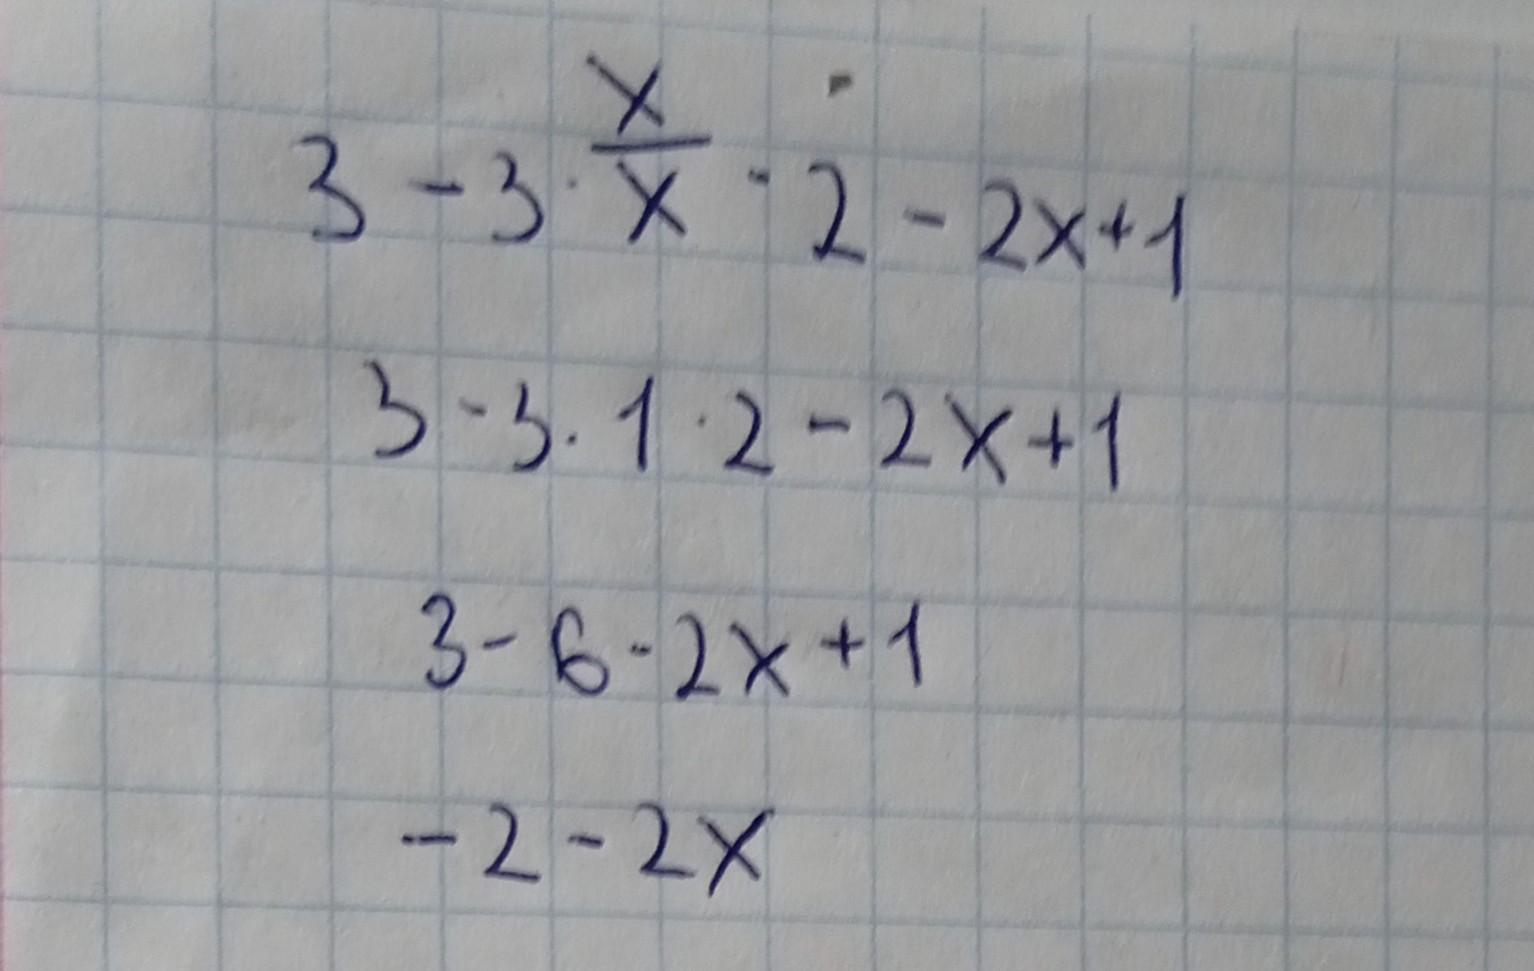 3 - 3 · x/x · 2 - 2x + 1
3 - 3 · 1 · 2 - 2x + 1
3 - 6 - 2x + 1
- 2 - 2x